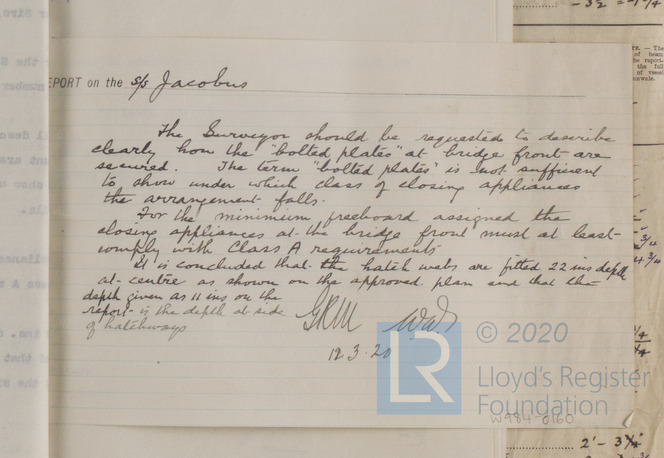 EPORT on the S/S Jacobus
The Surveyor should be requested to describe
clearly how the "bolted plates" at bridge front are
secured. The term "bolted plates" is not sufficient
to show under which class of closing appliances
the arrangement falls.
For the minimum freeboard assigned the
closing appliances at the bridge front must at least
comply with Class A requirements
It is concluded that the hatch webs are fitted 22 ins depth
at centre as shown on the approved plan and that the
depth given as 11 ins on the
report is the depth at side
of hatchways
12.3.20
LR
© 2020
Lloyd's Register
Foundation
W984-0160
2' - 3